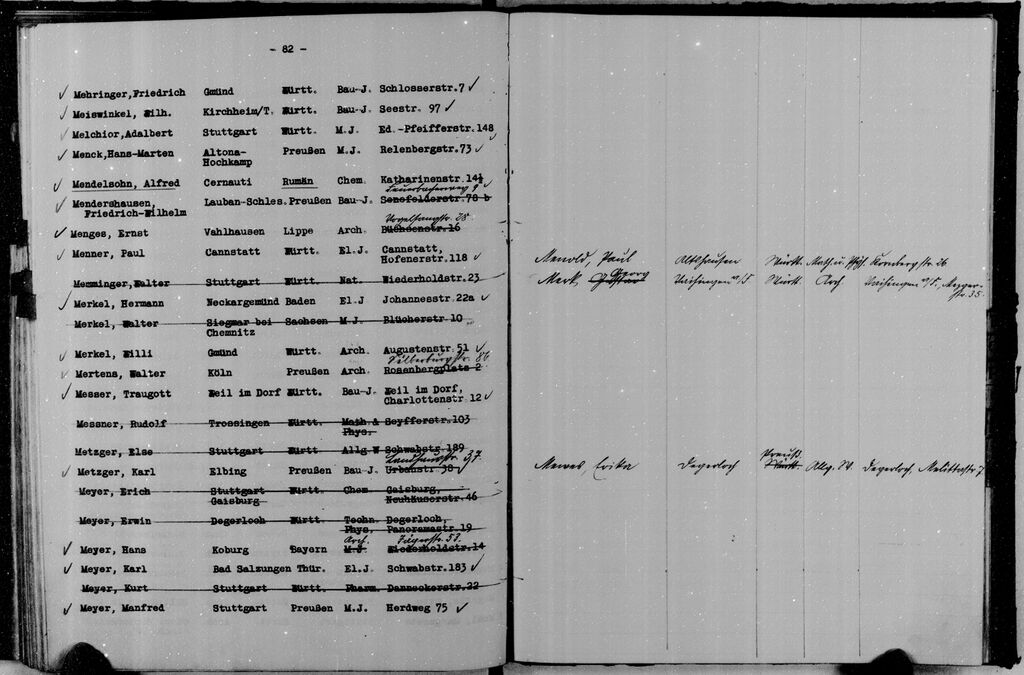 - 82 -
✓ Mehringer,Friedrich Gmünd Württ. Bau-J. Schlosserstr.7 ✓
✓ Meiswinkel, Wilh. Kirchheim/T. Württ. Bau-J. Seestr. 97 ✓
✓ Melchior,Adalbert Stuttgart Württ. M.J. Ed.-Pfeifferstr.148
✓ Menck,Hans-Marten Altona- Preußen M.J. Relenbergstr.73 ✓
Hochkamp
✓ Mendelsohn, Alfred Cernauti Rumän Chem. Katharinenstr.14½
Feuerbacherweg 9 ✓
✓ Mendershausen, Lauban-Schles. Preußen Bau-J. Senefelderstr.78 b
Friedrich-Wilhelm
Vogelsangstr. 28
✓ Menges, Ernst Vahlhausen Lippe Arch. Büchsenstr.16
✓ Menner, Paul Cannstatt Württ. El.J. Cannstatt,
Hofenerstr.118 ✓
Memminger,Walter Stuttgart Württ. Nat. Wiederholdstr.23
✓ Merkel, Hermann Neckargemünd Baden El.J Johannesstr.22a ✓
Merkel, Walter Siegmar bei Sachsen M.J. Blücherstr.10
Chemnitz
✓ Merkel, Willi Gmünd Württ. Arch. Augustenstr.51 ✓
Silberburgstr. 86
✓ Mertens, Walter Köln Preußen Arch. Rosenbergplatz 2
✓ Messer, Traugott Weil im Dorf Württ. Bau-J. Weil im Dorf,
Charlottenstr 12 ✓
Messner, Rudolf Trossingen Württ. Math & Seyfferstr.103
Phys.
Metzger, Else Stuttgart Württ. Allg.W Schwabstr.189
Landhausstr. 37
✓ Metzger, Karl Elbing Preußen Bau-J. Urbanstr 38 ✓
Meyer, Erich Stuttgart Württ. Chem Gaisburg,
Gaisburg Neuhäuserstr.46
Meyer, Erwin Degerloch Württ. Techn. Degerloch,
Phys. Panoramastr.19
Arch. Jägerstr. 53.
✓ Meyer, Hans Koburg Bayern M.J. Wiederholdstr.14
✓ Meyer, Karl Bad Salzungen Thür. El.J. Schwabstr.183 ✓
Meyer, Kurt Stuttgart Württ. Pharm. Danneckerstr.22
✓ Meyer, Manfred Stuttgart Preußen M.J. Herdweg 75 ✓
Menold, Paul Altshausen Württ. Math u. Phys. Kornbergstr 26
Georg
Merk, Gustav Vaihingen a/F Württ. Arch Vaihingen a/F,
str 35.
Preuß.
Mewes, Erika Degerloch Württ. Allg. W. Degerloch, Melittastr 7